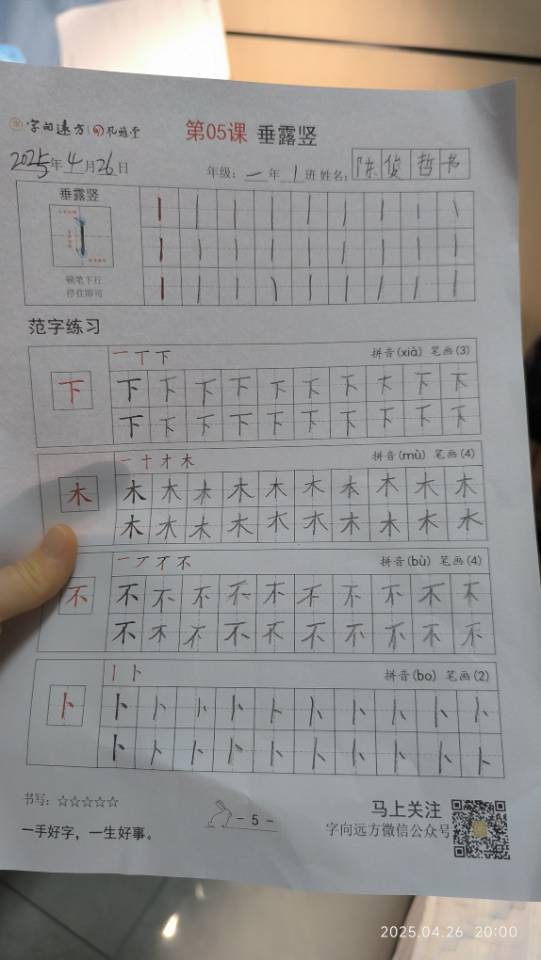 字向远方
第05课 垂露竖
2025年4月26日 年级：一年1班 姓名：陈俊哲书
垂露竖
顿笔下行
停住即可
范字练习
一丅下 拼音(xià) 笔画(3)
下 下下下下下下下下下下
下下下下下下下下下下
一十才木 拼音(mù) 笔画(4)
木 木木木木木木木木木木
木木木木木木木木木木
一丆不不 拼音(bù) 笔画(4)
不 不不不不不不不不不不
不不不不不不不不不不
丨卜 拼音(bo) 笔画(2)
卜 卜卜卜卜卜卜卜卜卜卜
卜卜卜卜卜卜卜卜卜卜
书写：☆☆☆☆☆
一手好字，一生好事。
- 5 -
马上关注
字向远方微信公众号
2025.04.26 20:00